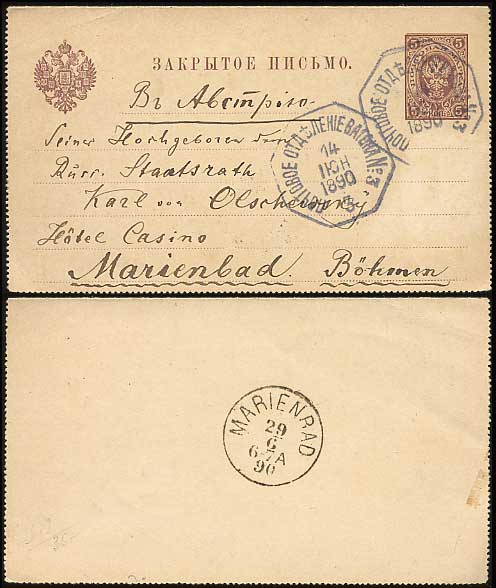 ЗАКРЫТОЕ ПИСЬМО.
5 5
5 5
Въ Австрію
Seiner Hochgeboren dem
Russ. Staatsrath
Karl von Olschewsky
Hôtel Casino
Marienbad. Böhmen
ПОЧТОВОЕ ОТДѢЛЕНІЕ №3
1890
ПОЧТОВОЕ ОТДѢЛЕНІЕ №3
14
ІЮН
1890
MARIENBAD
29
6
6-7A
90